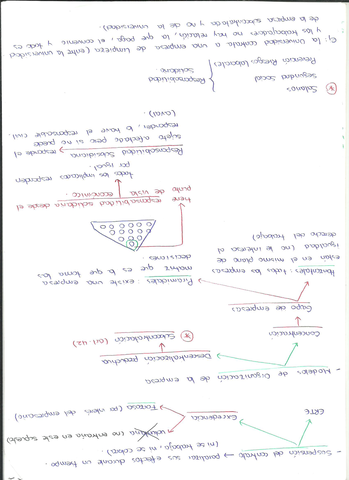 - Suspensión del contrato → paralizar sus efectos durante un tiempo.
(ni trabajo, ni se cobra)
ERTE
Excedencia
voluntaria (no entraría en este supuesto)
Forzosa (por interés del empresario)
- Modelos de Organización de la empresa
Descentralización productiva
Concentración
Subcontratación (art. 42)
Grupo de empresas
Horizontales: todas las empresas
están en el mismo plano de
igualdad (no le interesa al
derecho del trabajo)
Piramidales: existe una empresa
matriz que es la que toma las
decisiones.
tiene responsabilidad solidaria desde el
punto de vista económico.
todos los implicados responden
por igual.
Responsabilidad Subsidiaria → responde el
sujeto afectado pero si no puede
responder, lo hace el responsable civil.
(aval)
Salarios
Seguridad Social
Prevención Riesgos Laborales
Responsabilidad
Solidaria
Ej: la Universidad contrata a una empresa de limpieza (entre la universidad
y los trabajadores no hay relación, la que paga, el convenio y todo es
de la empresa subcontratada y no de la universidad).